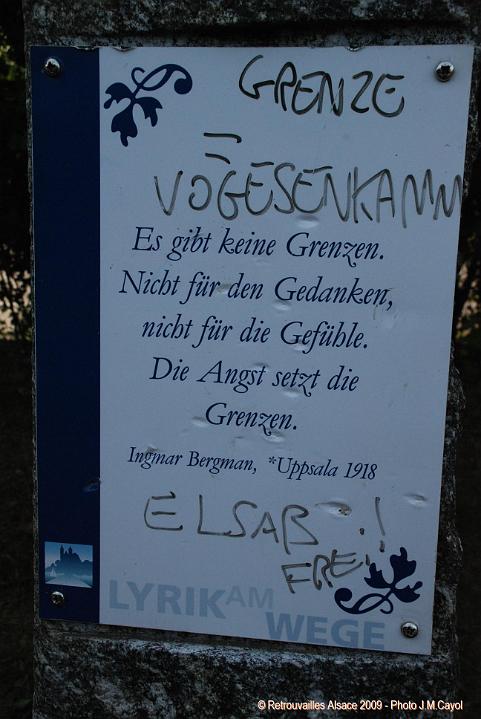 GRENZE
=
VOGESENKAMM
Es gibt keine Grenzen.
Nicht für den Gedanken,
nicht für die Gefühle.
Die Angst setzt die
Grenzen.
Ingmar Bergman, *Uppsala 1918
ELSAß !
FREI!
LYRIK AM
WEGE
© Retrouvailles Alsace 2009 - Photo J.M.Cayol